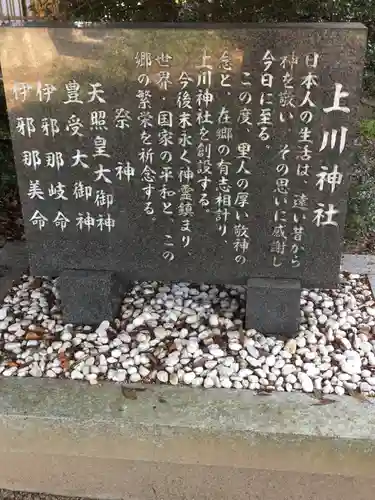 上川神社
日本人の生活は、遠い昔から
神を敬い、その思いに感謝し
今日に至る。
この度、里人の厚い敬神の
念と、在郷の有志相計り、
上川神社を創設する。
今後末永く神霊鎮まり、
世界・国家の平和と、この
郷の繁栄を祈念する。
祭神
天照皇大御神
豊受大御神
伊邪那岐命
伊邪那美命